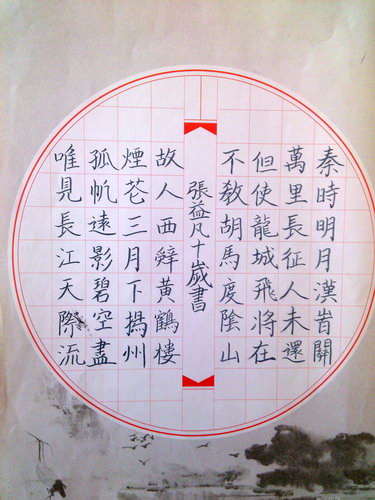 秦時明月漢旹關
萬里長征人未還
但使龍城飛將在
不教胡馬度陰山
張益凡十歲書
故人西辭黃鶴樓
煙花三月下揚州
孤帆遠影碧空盡
唯見長江天際流